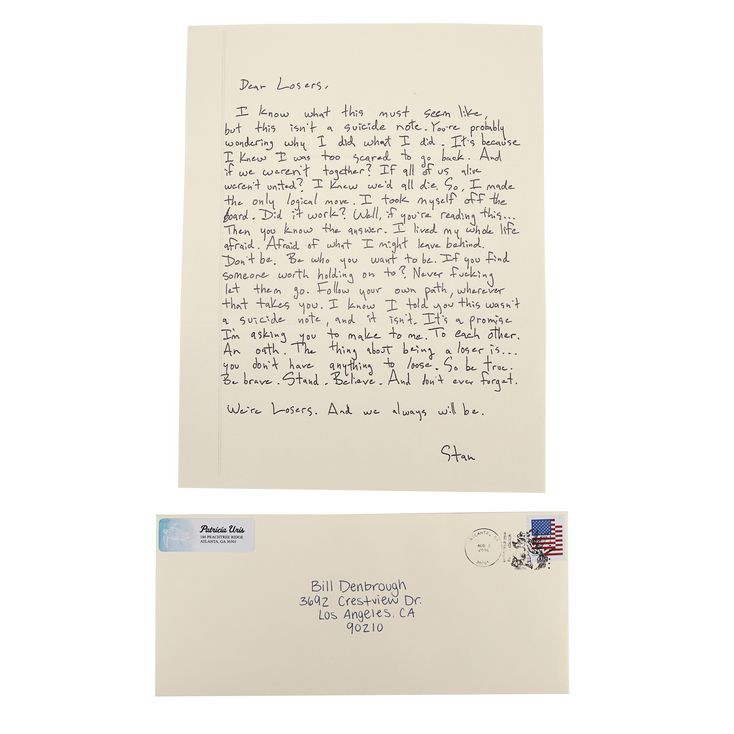 Dear Losers,
I know what this must seem like,
but this isn't a suicide note. You're probably
wondering why I did what I did. It's because
I knew I was too scared to go back. And
if we weren't together? If all of us alive
weren't united? I knew we'd all die. So, I made
the only logical move. I took myself off the
board. Did it work? Well, if you're reading this...
Then you know the answer. I lived my whole life
afraid. Afraid of what I might leave behind.
Don't be. Be who you want to be. If you find
someone worth holding on to? Never fucking
let them go. Follow your own path, wherever
that takes you. I know I told you this wasn't
a suicide note, and it isn't. It's a promise
I'm asking you to make to me. To each other.
An oath. The thing about being a loser is...
you don't have anything to loose. So be true.
Be brave. Stand. Believe. And don't ever forget.
We're Losers. And we always will be.
Stan
Patricia Uris
PEACHTREE RIDGE
ATLANTA, GA
Bill Denbrough
3692 Crestview Dr.
Los Angeles, CA
90210